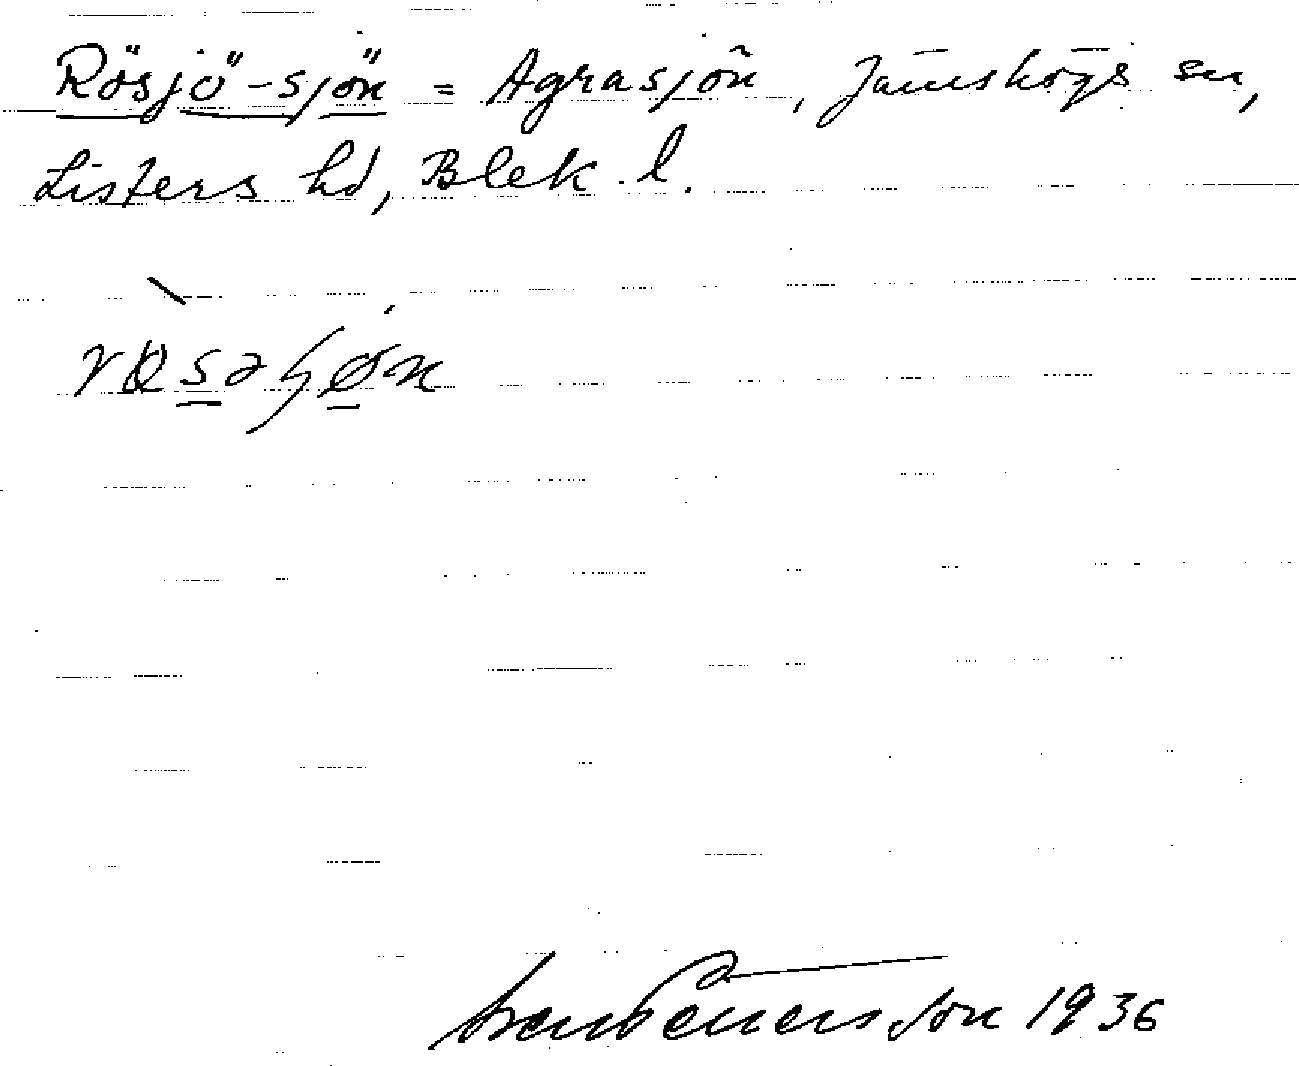 Rösjö-sjön = Agrasjön, Jämshögs sn,
Listers hd, Blek. l.
rösəɧøn
Sven Benson 1936